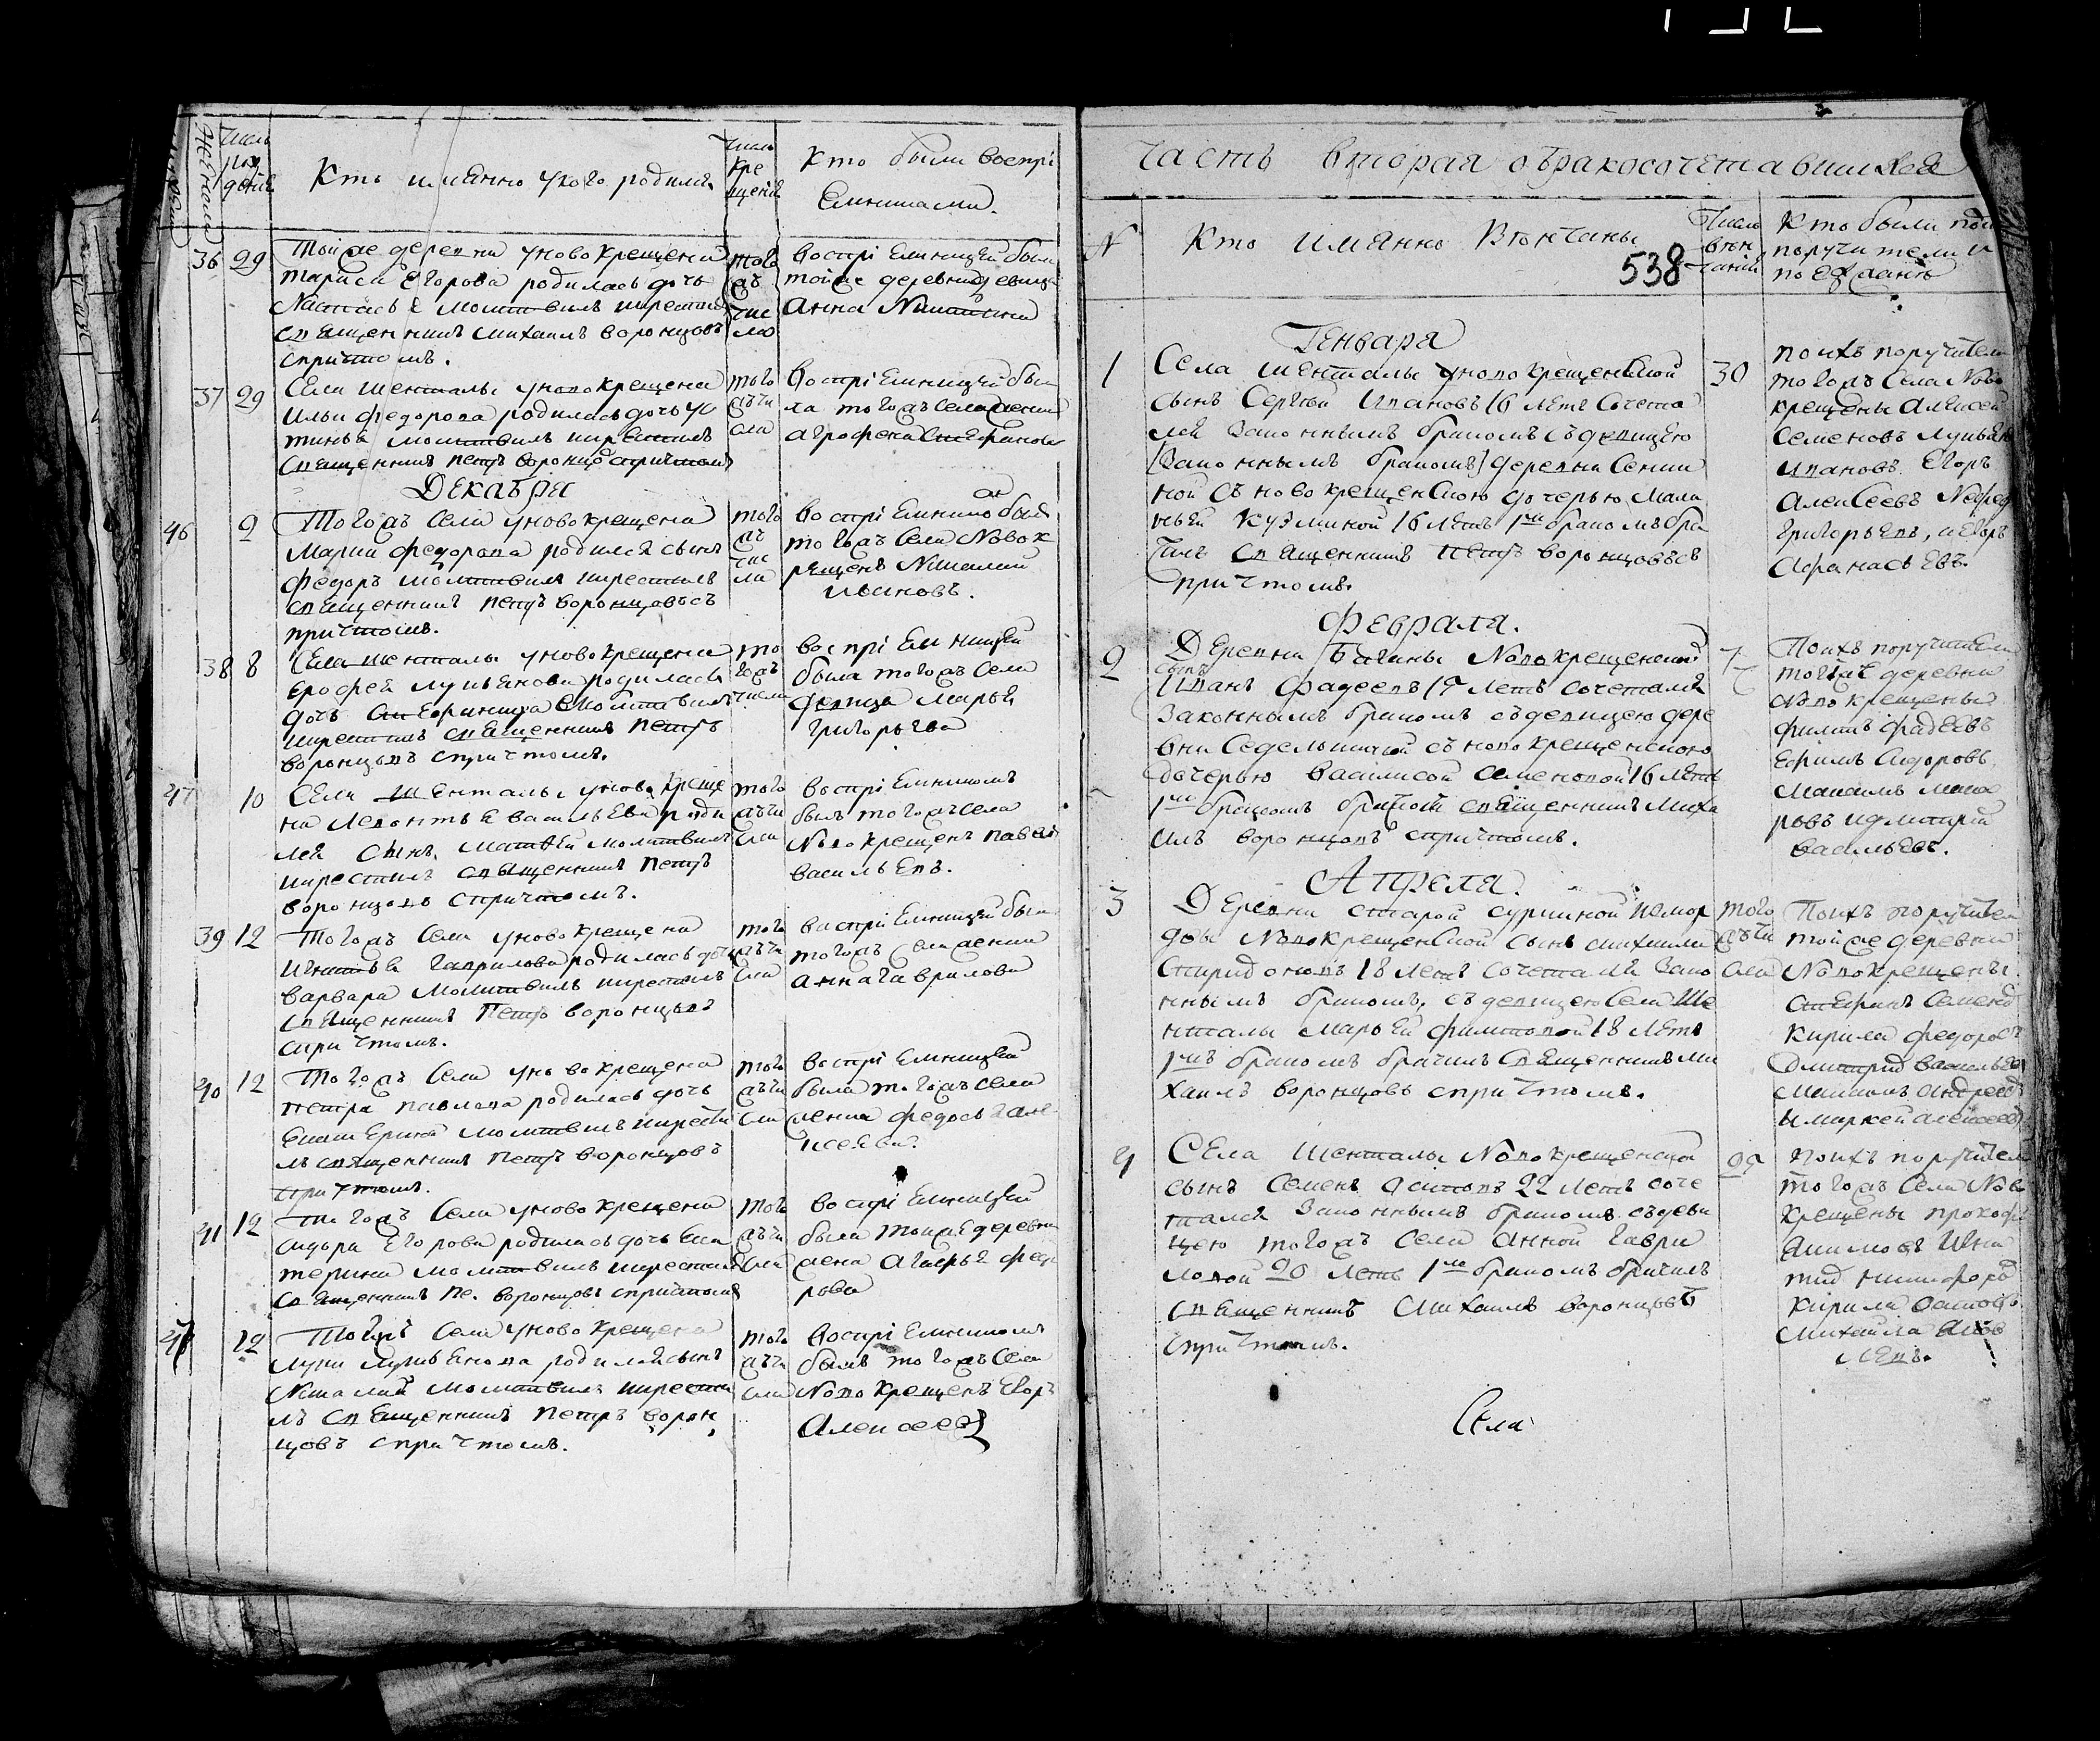 Числ
рож
деніѧ
Женска
Кто имянно укого родился
Числ
кре
щенія
Кто были воспрі
емниками.
36 29 Тойже деревни уновокрещена
Тараса Егорова родилась дочь
молитвилъ икрестилъ
священникъ Михаилъ Воронцовъ
спричтомъ.
того
жъ
чис
ла
воспріемницей была
тойже деревни девица
Анна Никитина
37 29 Села Шенталы уновокрещена
Ильи Федорова родилась дочь Ус
тинья молитвилъ икрестилъ
священникъ Петръ Воронцо спричтомъ
того
жъчи
сла
воспріемницей бы
ла тогожъ села жена
Агрофена Стефанова
Декабря
46 2 Тогожъ села уновокрещена
Марки Федорова родился сынъ
Федоръ молитвилъ икрестилъ
священникъ Петръ Воронцовъ съ
причтомъ.
того
жъ
чис
ла
воспріемникомъ былъ
тогожъ села Новок
рещенъ Николай
Ивановъ.
38 8 Села Шенталы уновокрещена
Ерофея Лукьянова родилась
дочь Стефанида молитвилъ
икрестилъ священникъ Петръ
Воронцовъ спричтомъ.
то
гожъ
числа
воспріемницей
была тогожъ села
девица Марья
Григорьева
47 10 Села Шенталы уновокреще
на Леонтья Васильева роди
лся сынъ Матвей молитвилъ
икрестилъ священникъ Петръ
Воронцовъ спричтомъ.
того
жъчи
сла
воспріемникомъ
былъ тогожъ села
Новокрещенъ Павелъ
Васильевъ.
39 12 Тогожъ села уновокрещена
Игнатья Гаврилова родилась дочь
Варвара молитвилъ икрестилъ
священникъ Петръ Воронцовъ
спричтомъ.
того
жъчи
сла
воспріемницей была
тогожъ села жена
Анна Гаврилова
40 12 Тогожъ села уновокрещена
Петра Павлова родилась дочь
Екатерина молитвилъ икрести
лъ священникъ Петръ Воронцовъ
спричтомъ.
того
жъчи
сла
воспріемницей
была тогожъ села
жена Федосья Але
ксеева.
41 12 Тогожъ села уновокрещена
Сидора Егорова родилась дочь Ека
терина молитвилъ икрестилъ
священникъ Пе. Воронцовъ спричтомъ
того
жъчи
сла
воспріемницей
была тояже деревни
жена Агафья Федо
рова
48 12 Тогожъ села уновокрещена
Луки Лукьянова родился сынъ
Николай молитвилъ икрести
лъ священникъ Петръ Ворон
цовъ спричтомъ.
того
жъчи
сла
воспріемникомъ
былъ тогожъ села
Новокрещенъ Егоръ
Алексеевъ
Часть вторая обракосочетавшихся
N
Кто имянно венчаны
538
Числ
вен
чанія
Кто были по
поручители и
поезжанѣ
Генваря
1 Села Шенталы уновокрещенской
сынъ Сергѣй Ивановъ 16 летъ сочета
лся законнымъ бракомъ съ девицею
(законнымъ бракомъ) деревни Сенки
ной съ новокрещенскою дочерью Мала
ньей Кузминой 16 летъ 1мъ бракомъ бра
чилъ священникъ Петръ Воронцовъ съ
причтомъ.
30
поихъ поручители
тогожъ села Ново
крещены Алексей
Семеновъ Лукьянъ
Ивановъ Егоръ
Алексеевъ Нефед
Григорьевъ, иЕгоръ
Афанасьевъ.
Февраля.
2 Деревни Баганы Новокрещенской
сынъ
Иванъ Фадеевъ 17 летъ сочетался
законнымъ бракомъ съ девицею дере
вни Седелькиной съ новокрещенскою
дочерью Василисой Семеновой 16 летъ
1мъ бракомъ брачилъ священникъ Миха
илъ Воронцовъ спричтомъ.
7
Поихъ поручители
тойже деревни
Новокрещены
Филипъ Фадеевъ
Ефимъ Сидоровъ.
Максимъ Мака
ровъ иДмитрій
Васильевъ.
Апреля.
3 Деревни Старой Суркиной измор
двы Новокрещенской сынъ Михаила
Спиридоновъ 18 летъ сочетался зако
ннымъ бракомъ, съ девицею села Ше
нталы Марьей Филиповой 18 летъ
1мъ бракомъ брачилъ священникъ Ми
хаилъ Воронцовъ спричтомъ.
того
жъчи
сла
Поихъ поручител
тойже деревни
Новокрещены
Стефанъ Семено
Кирила Федоровъ
Дмитрій Васильевъ
Максимъ Андреев
ыМаркей Алексеев
4 Села Шенталы Новокрещенской
сынъ Семенъ Осиповъ 22 летъ соче
тался законнымъ бракомъ съ деви
цею тогожъ села Анной Гаври
ловой 20 летъ 1мъ бракомъ брачилъ
священникъ Михаилъ Воронцовъ
спричтомъ.
поихъ поручител
тогожъ села Ново
крещены Прокофи
Якимовъ Игна
тій Никифоровъ
Кирила Осипо
Михайла Яков
левъ.
Села